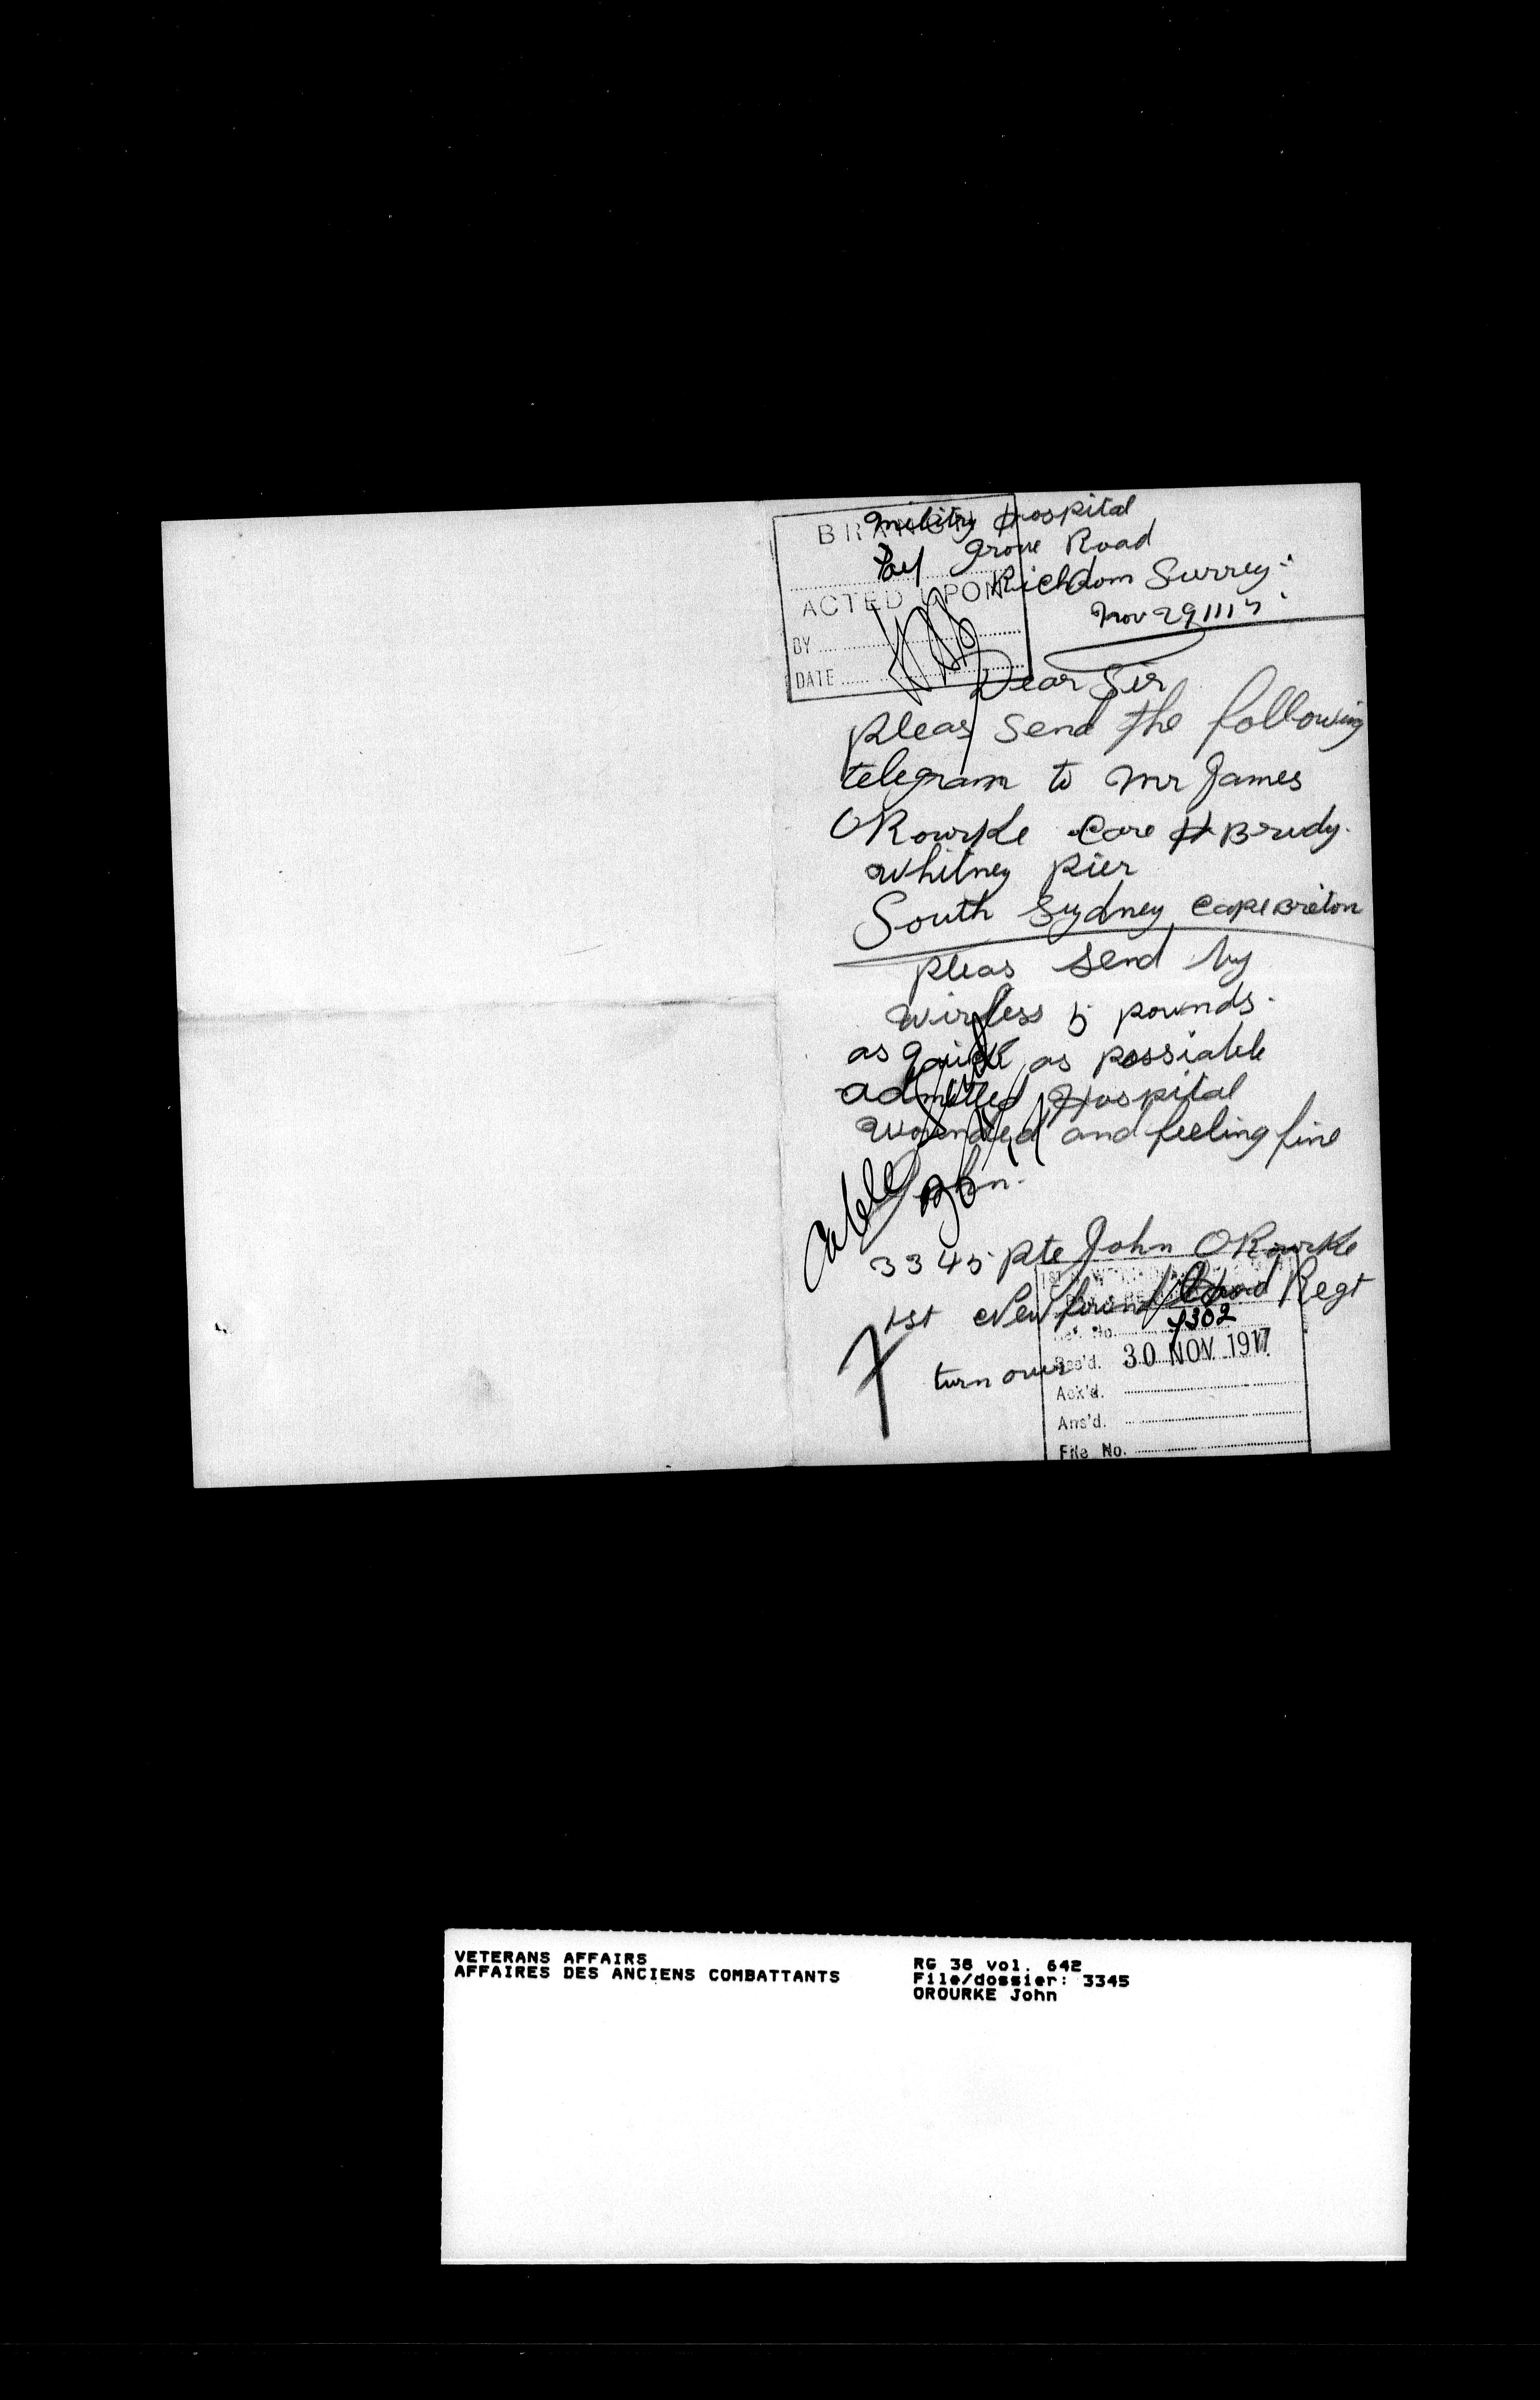 BRANCH
Pay
ACTED UPON
BY
DATE
Military Hospital
Grove Road
Richdom Surrey
Nov 29 1117
Dear Sir
pleas send the following
telegram to Mr James
ORourke Care H Brudy.
Whitney pier
South Sydney Cape Breton
pleas send by
wirless 5 pounds.
as quick as possiable
admitted Hospital
wounded and feeling fine
John.
Cable
3345 pte John ORourke
1st Newfoundland Regt
turn over
Ref. No. 4302
Rec'd. 30 NOV 1917
Ack'd.
Ans'd.
File No.
VETERANS AFFAIRS
AFFAIRES DES ANCIENS COMBATTANTS
RG 38 vol. 642
File/dossier: 3345
OROURKE John